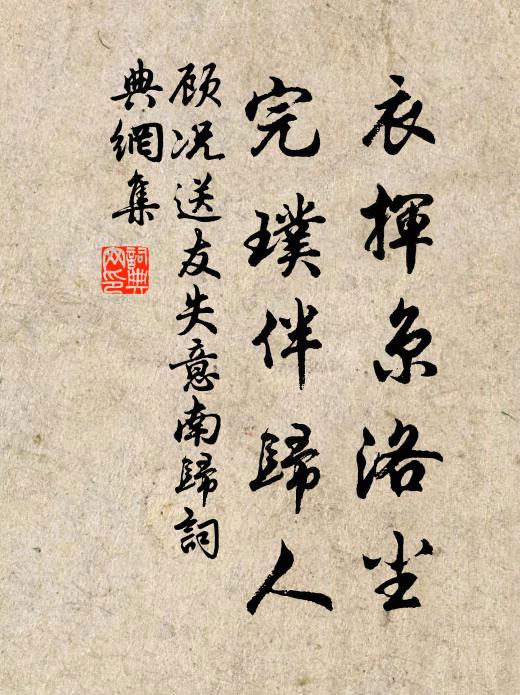 衣揮京洛尘
完璞伴歸人
顾况送友失意南歸詞
典網集
詞典